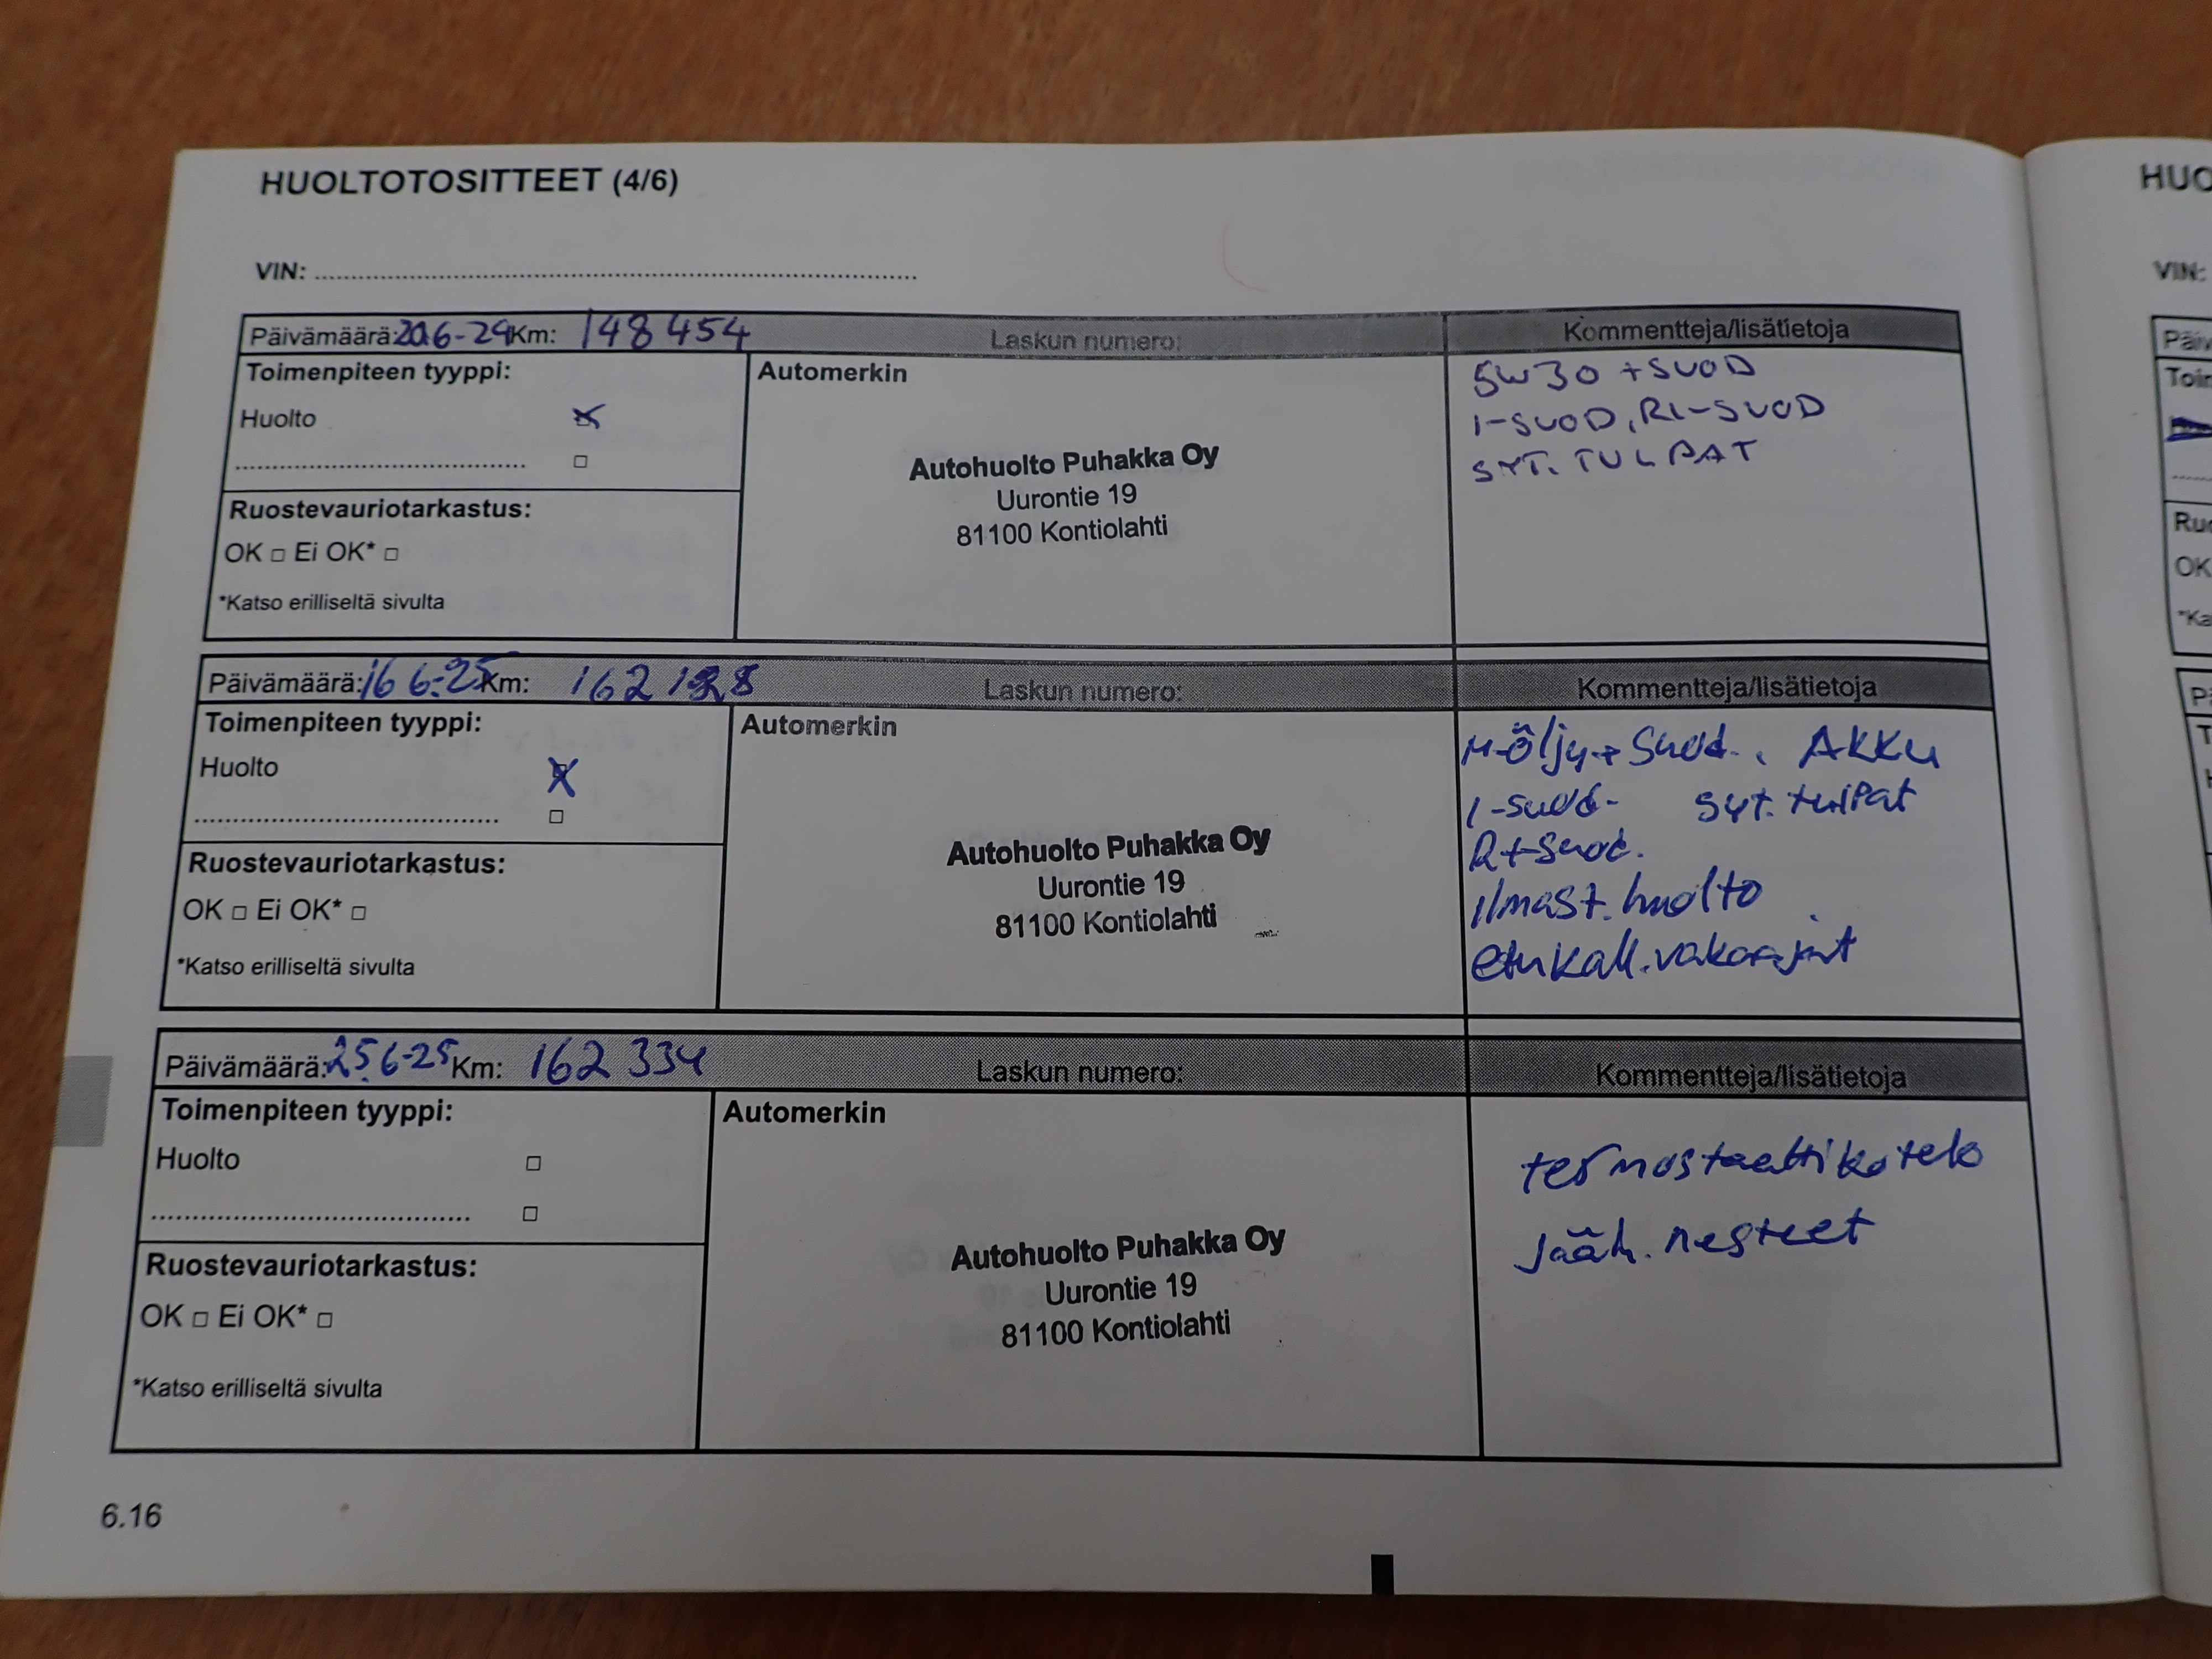 HUOLTOTOSITTEET (4/6)
VIN:
Päivämäärä: 20.6-24 Km: 148 454 Laskun numero: Kommentteja/lisätietoja
Toimenpiteen tyyppi:
Huolto
Automerkin
Autohuolto Puhakka Oy
Uurontie 19
81100 Kontiolahti
5W30 +SUOD
I-SUOD, RI-SUOD
SYT. TULPAT
Ruostevauriotarkastus:
OK □ Ei OK* □
*Katso erilliseltä sivulta
Päivämäärä: 16 6-25 Km: Laskun numero: Kommentteja/lisätietoja
Toimenpiteen tyyppi:
Huolto
Automerkin
Autohuolto Puhakka Oy
Uurontie 19
81100 Kontiolahti
M-öljy+Suod. , AKKU
I-suod- syt. tulpat
R+Suod.
ilmast. huolto
etukall. vakaajat
Ruostevauriotarkastus:
OK □ Ei OK* □
*Katso erilliseltä sivulta
Päivämäärä: 25.6-25 Km: 162 334 Laskun numero: Kommentteja/lisätietoja
Toimenpiteen tyyppi:
Huolto
Automerkin
Autohuolto Puhakka Oy
Uurontie 19
81100 Kontiolahti
termostaattikotelo
jääh. nesteet
Ruostevauriotarkastus:
OK □ Ei OK* □
*Katso erilliseltä sivulta
6.16
VIN:
OK